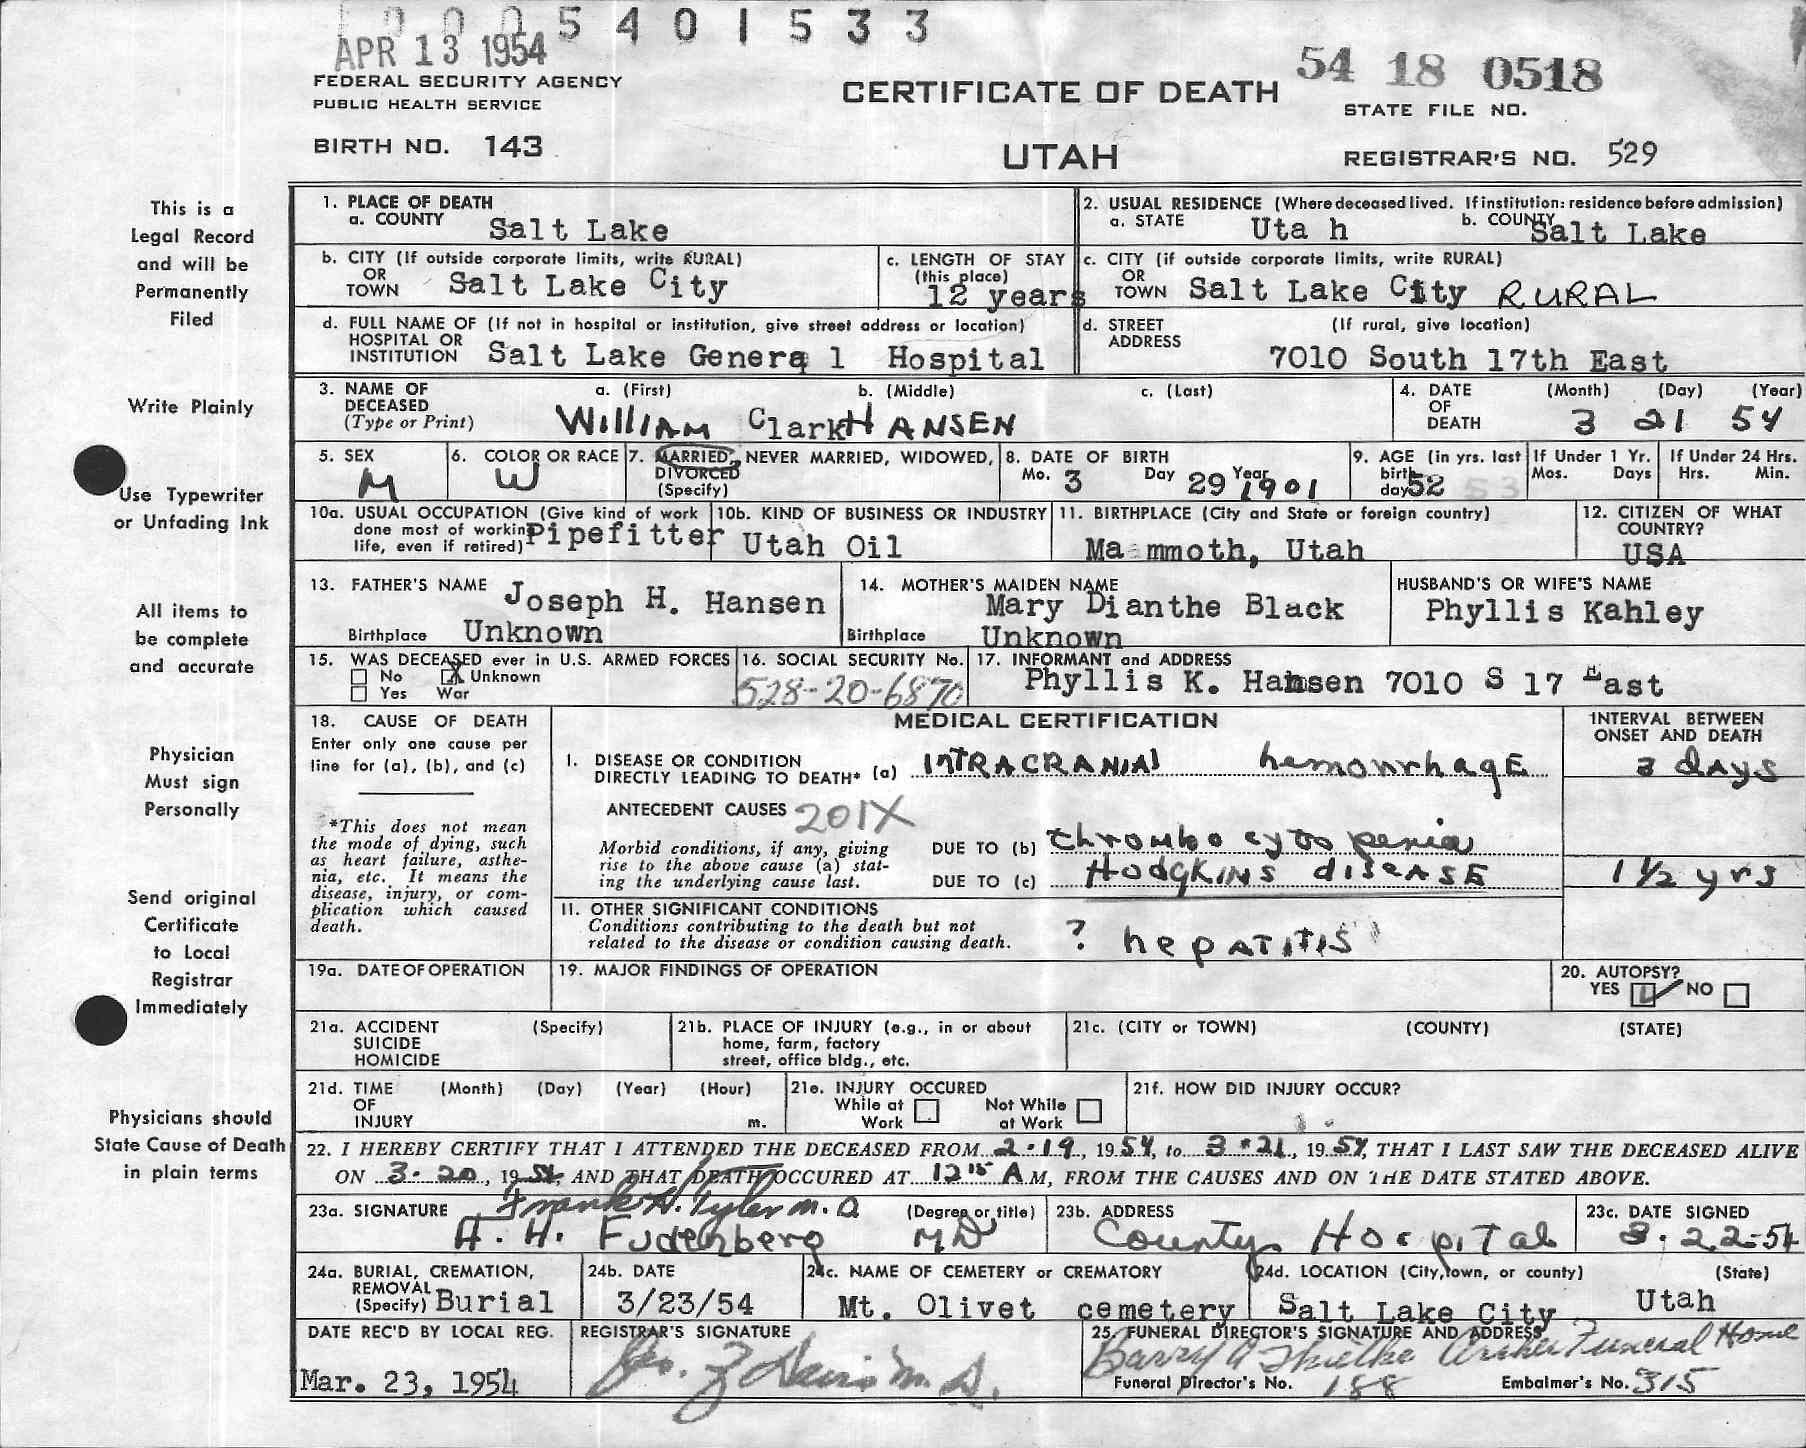 0005401533
APR 13 1954
54 18 0518
FEDERAL SECURITY AGENCY
PUBLIC HEALTH SERVICE
CERTIFICATE OF DEATH
STATE FILE NO.
BIRTH NO. 143
UTAH
REGISTRAR'S NO. 529
This is a
Legal Record
and will be
Permanently
Filed
Write Plainly
Use Typewriter
or Unfading Ink
All items to
be complete
and accurate
Physician
Must sign
Personally
Send original
Certificate
to Local
Registrar
Immediately
Physicians should
State Cause of Death
in plain terms
1. PLACE OF DEATH
a. COUNTY Salt Lake
2. USUAL RESIDENCE (Where deceased lived. If institution: residence before admission)
a. STATE Uta h b. COUNTY Salt Lake
b. CITY (If outside corporate limits, write RURAL)
OR
TOWN Salt Lake City
c. LENGTH OF STAY
(this place)
12 years
c. CITY (if outside corporate limits, write RURAL)
OR
TOWN Salt Lake City RURAL
d. FULL NAME OF (If not in hospital or institution, give street address or location)
HOSPITAL OR
INSTITUTION Salt Lake Genera l Hospital
d. STREET (If rural, give location)
ADDRESS
7010 South 17th East
3. NAME OF a. (First) b. (Middle) c. (Last)
DECEASED
(Type or Print) WILLIAM Clark HANSEN
4. DATE (Month) (Day) (Year)
OF
DEATH 3 21 54
5. SEX
M
6. COLOR OR RACE
W
7. MARRIED, NEVER MARRIED, WIDOWED,
DIVORCED
(Specify)
8. DATE OF BIRTH
Mo. 3 Day 29 Year 1901
9. AGE (in yrs. last
birth
day 52 53
If Under 1 Yr.
Mos. Days
If Under 24 Hrs.
Hrs. Min.
10a. USUAL OCCUPATION (Give kind of work
done most of workin
life, even if retired) Pipefitter
10b. KIND OF BUSINESS OR INDUSTRY
Utah Oil
11. BIRTHPLACE (City and State or foreign country)
Ma mmoth, Utah
12. CITIZEN OF WHAT
COUNTRY?
USA
13. FATHER'S NAME Joseph H. Hansen
Birthplace Unknown
14. MOTHER'S MAIDEN NAME
Mary Dianthe Black
Birthplace Unknown
HUSBAND'S OR WIFE'S NAME
Phyllis Kahley
15. WAS DECEASED ever in U.S. ARMED FORCES
No X Unknown
Yes War
16. SOCIAL SECURITY No.
528-20-6870
17. INFORMANT and ADDRESS
Phyllis K. Hansen 7010 S 17 East
18. CAUSE OF DEATH
Enter only one cause per
line for (a), (b), and (c)
*This does not mean
the mode of dying, such
as heart failure, asthe-
nia, etc. It means the
disease, injury, or com-
plication which caused
death.
MEDICAL CERTIFICATION
INTERVAL BETWEEN
ONSET AND DEATH
I. DISEASE OR CONDITION
DIRECTLY LEADING TO DEATH* (a) INTRACRANIAL hemorrhage 3 days
ANTECEDENT CAUSES 201X
Morbid conditions, if any, giving
rise to the above cause (a) stat-
ing the underlying cause last.
DUE TO (b) thrombocytopenia
DUE TO (c) HODGKINS disease 1 1/2 yrs
II. OTHER SIGNIFICANT CONDITIONS
Conditions contributing to the death but not
related to the disease or condition causing death.
? hepatitis
19a. DATE OF OPERATION
19. MAJOR FINDINGS OF OPERATION
20. AUTOPSY?
YES ✓ NO
21a. ACCIDENT (Specify)
SUICIDE
HOMICIDE
21b. PLACE OF INJURY (e.g., in or about
home, farm, factory
street, office bldg., etc.
21c. (CITY or TOWN) (COUNTY) (STATE)
21d. TIME (Month) (Day) (Year) (Hour)
OF
INJURY m.
21e. INJURY OCCURED
While at Work Not While at Work
21f. HOW DID INJURY OCCUR?
22. I HEREBY CERTIFY THAT I ATTENDED THE DECEASED FROM 2-19, 1954, to 3-21, 1954, THAT I LAST SAW THE DECEASED ALIVE
ON 3-20, 1954, AND THAT DEATH OCCURED AT 12 15 A M, FROM THE CAUSES AND ON THE DATE STATED ABOVE.
23a. SIGNATURE Frank H. Tyler M.D. (Degree or title)
H. H. Fudenberg MD
23b. ADDRESS
County Hospital
23c. DATE SIGNED
3-22-54
24a. BURIAL, CREMATION,
REMOVAL
(Specify) Burial
24b. DATE
3/23/54
24c. NAME OF CEMETERY or CREMATORY
Mt. Olivet cemetery
24d. LOCATION (City, town, or county) (State)
Salt Lake City Utah
DATE REC'D BY LOCAL REG.
Mar. 23, 1954
REGISTRAR'S SIGNATURE
Davis M.D.
25. FUNERAL DIRECTOR'S SIGNATURE AND ADDRESS
Barry Archer Funeral Home
Funeral Director's No. 188 Embalmer's No. 315